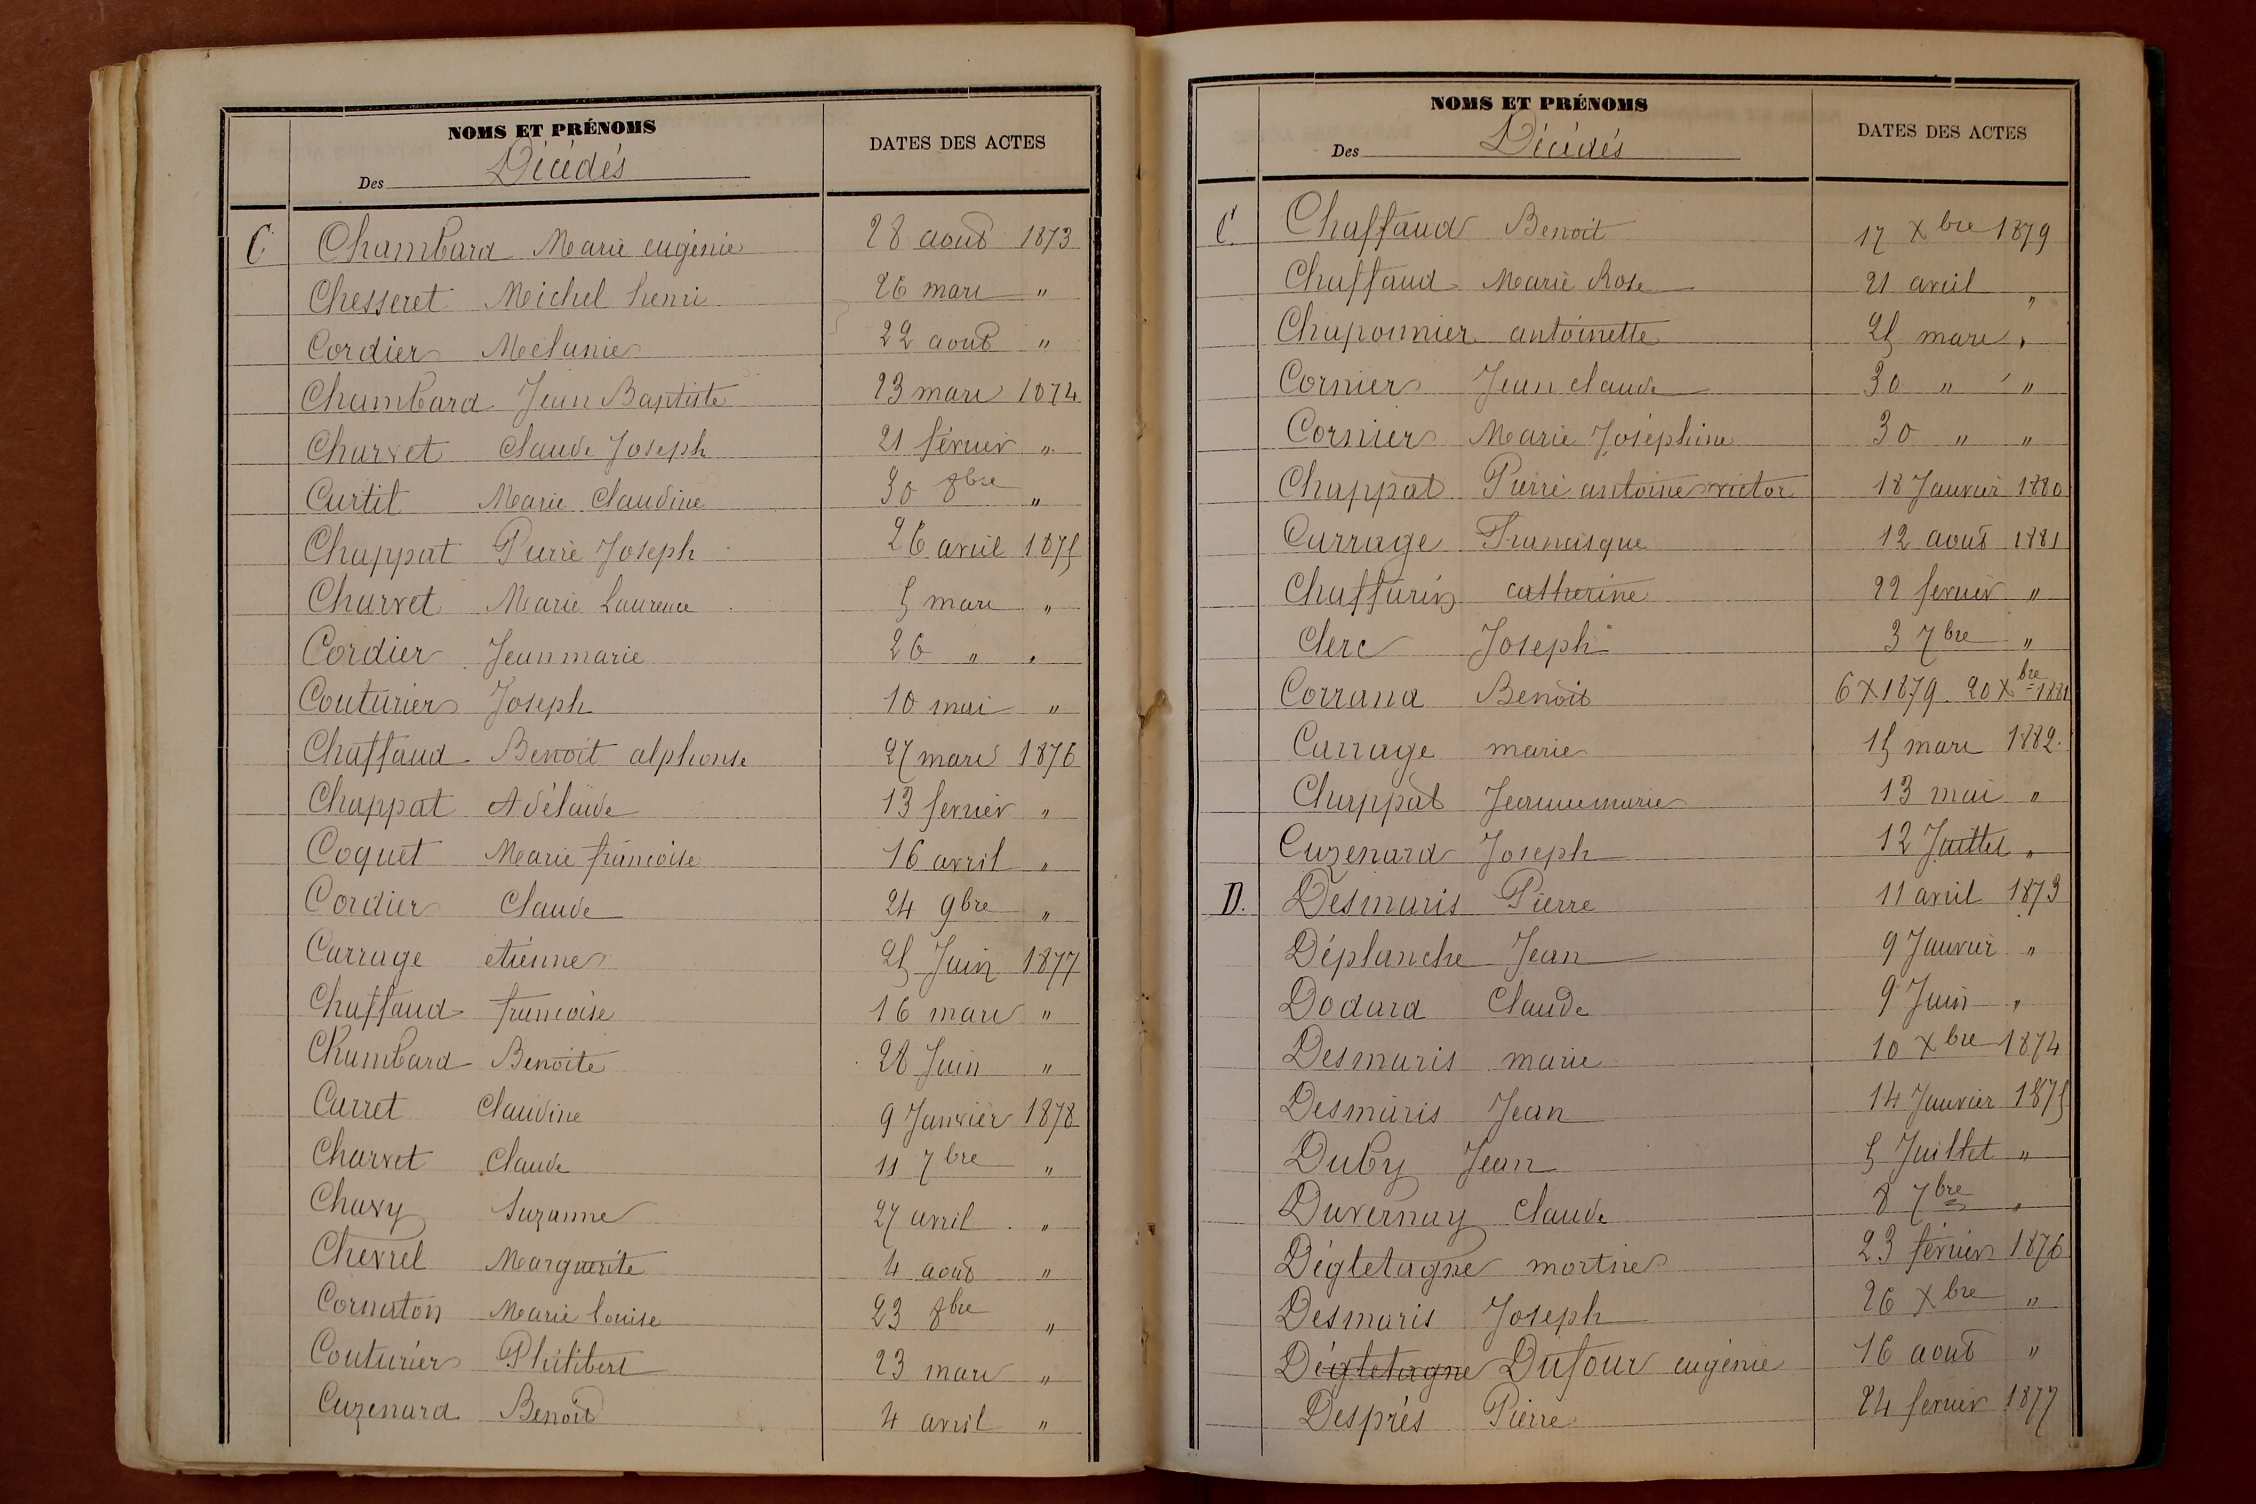 NOMS ET PRÉNOMS
Des Décédés
DATES DES ACTES
C Chambard Marie eugénie 28 aout 1873
Chesseret Michel henri 26 mars "
Cordier Melanie 22 aout "
Chambard Jean Baptiste 23 mars 1874
Charvet Claude Joseph 21 février "
Curtil Marie Claudine 30 8bre "
Chappat Pierre Joseph 26 avril 1875
Charvet Marie Laurence 5 mars "
Cordier Jeanmarie 26 " "
Couturier Joseph 10 mai "
Chaffaud Benoit alphonse 27 mars 1876
Chappat Adélaïde 13 fevrier "
Coquet Marie françoise 16 avril "
Cordier Claude 24 9bre "
Carrage etienne 25 Juin 1877
Chaffaud françoise 16 mars "
Chambard Benoite 28 Juin "
Carret Claudine 9 Janvier 1878
Charvet Claude 11 7bre "
Chavy Suzanne 27 avril "
Chevrel Marguerite 4 aout "
Cornaton Marie Louise 23 8bre "
Couturier Philibert 23 mars "
Cuzenard Benoit 4 avril "
NOMS ET PRÉNOMS
Des Décédés
DATES DES ACTES
C. Chaffaud Benoit 17 Xbre 1879
Chaffaud Marie Rose 21 avril "
Chaponnier antoinette 25 mars "
Cornier Jean claude 30 " "
Cornier Marie Joséphine 30 " "
Chappat Pierre antoine victor 18 Janvier 1880
Carrage Francisque 12 aout 1881
Chaffurin catherine 22 fevrier "
Clerc Joseph 3 7bre "
Corrand Benoit 6 X 1879 20 Xbre 1881
Carrage marie 15 mars 1882.
Chappat Jeannemarie 13 mai "
Cuzenard Joseph 12 Juillet "
D. Desmaris Pierre 11 avril 1873
Déplanche Jean 9 Janvier "
Dodard Claude 9 Juin "
Desmaris marie 10 Xbre 1874
Desmaris Jean 14 Janvier 1875
Duby Jean 5 Juillet "
Duvernay Claude 8 7bre "
Dégletagne mortne 23 février 1876
Desmaris Joseph 26 Xbre "
Dégletagne Dufour eugénie 16 aout "
Desprès Pierre 24 fevrier 1877